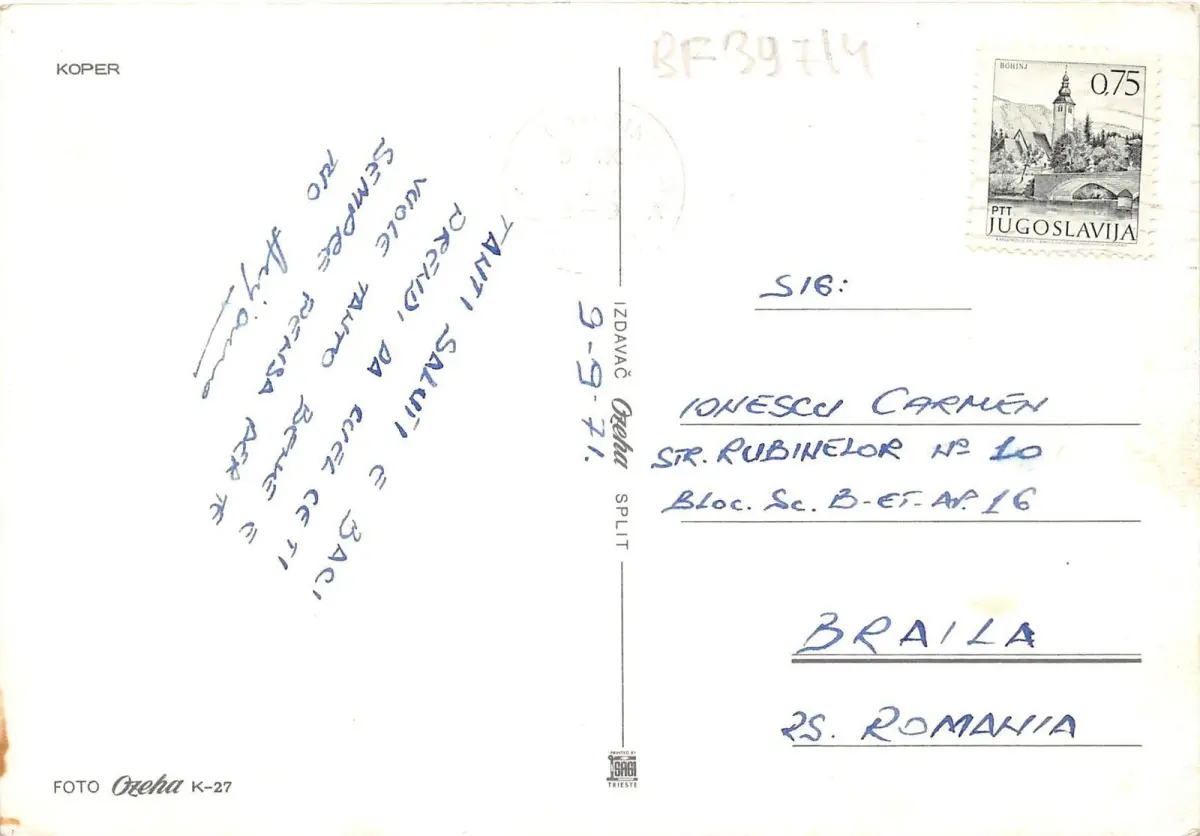 KOPER
BF 397/4
BOHINJ
0,75
PTT
JUGOSLAVIJA
TANTI SALUTI E BACI
PRENDI DA CUEL CE TI
VUOLE TANTO BENE E
SEMPRE PENSA PER TE
9-9-71.
IZDAVAČ Ozeha SPLIT
SIG:
IONESCU CARMEN
STR. RUBINELOR Nº 10
BLOC. Sc. B-ET-AP. 16
BRAILA
RS. ROMANIA
FOTO Ozeha K-27
PRINTED BY
SAGI
TRIESTE